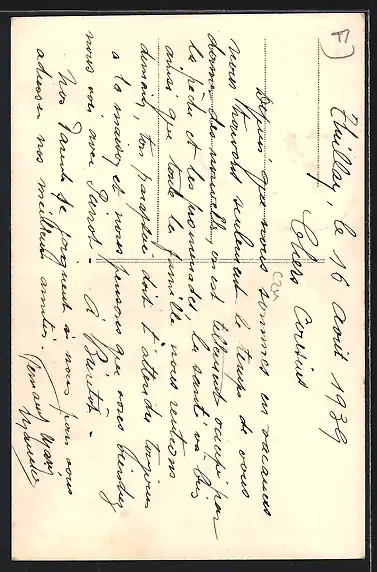 F)
Thilley, le 16 Août 1939
Chers Cousins
Depuis que nous sommes en vacances
nous trouvons seulement le temps de vous
donner des nouvelles, on est tellement occupé par
la pêche et les promenades, la santé va bien
ainsi que toute la famille nous rentrons
dimanche, ton parrain doit t'attendre toujours
à la maison et nous pensons que vous viendrez
nous voir avec Pierrot. À Bientôt -
Nos Parents se joignent à nous pour vous
adresser nos meilleures amitiés.
Fernand Mary